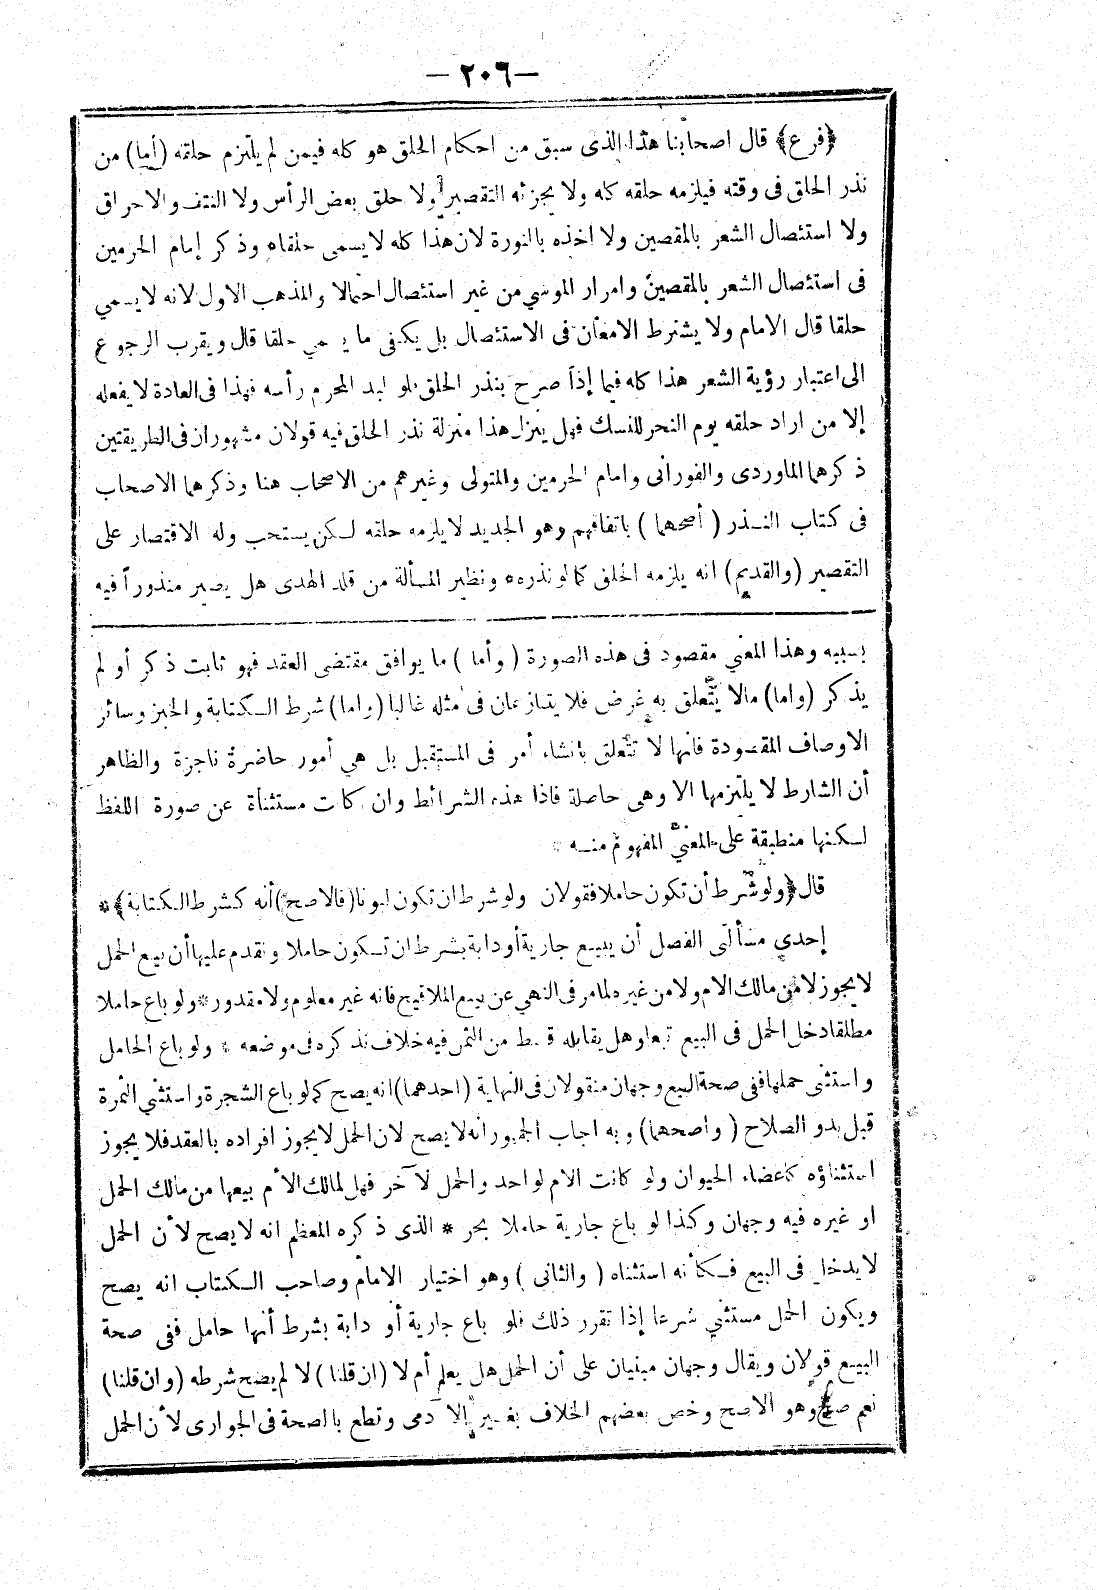 — ٢٠٦ —
﴿فرع﴾ قال اصحابنا هذا الذى سبق من احكام الحلق هو كله فيمن لم يلتزم حلقه (أما) من
نذر الحلق فى وقته فيلزمه حلقه كله ولا يجزئه التقصير ولا حلق بعض الرأس ولا النتف والاحراق
ولا استئصال الشعر بالمقصين ولا اخذه بالنورة لان هذا كله لا يسمى حلقا* وذكر إمام الحرمين
فى استئصال الشعر بالمقصين وامرار الموسي من غير استئصال احتمالا والمذهب الاول لانه لا يسمي
حلقا قال الامام ولا يشترط الامعان فى الاستئصال بل يكفى ما يسمي حلقا قال ويقرب الرجوع
الى اعتبار رؤية الشعر هذا كله فيما إذا صرح بنذر الحلق فلو لبد المحرم رأسه فهذا فى العادة لا يفعله
إلا من اراد حلقه يوم النحر للنسك فهل ينزل هذا منزلة نذر الحلق فيه قولان مشهوران فى الطريقتين
ذكرهما الماوردى والفورانى وامام الحرمين والمتولى وغيرهم من الاصحاب هنا وذكرهما الاصحاب
فى كتاب النـذر (أصحهما) باتفاقهم وهو الجديد لا يلزمه حلقه لـكن يستحب وله الاقتصار على
التقصير (والقديم) انه يلزمه الحلق كما لو نذره* ونظير المسألة من قلد الهدى هل يصير منذوراً فيه
بسببه وهذا المعني مقصود فى هذه الصورة (وأما) ما يوافق مقتضى العقد فهو ثابت ذكر أو لم
يذكر (واما) مالا يتعلق به غرض فلا يتنازعان فى مثله غالبا (واما) شرط الـكتابة والخبز وسائر
الاوصاف المقصودة فانها لا تتعلق بانشاء أمر فى المستقبل بل هي أمور حاضرة ناجزة والظاهر
أن الشارط لا يلتزمها الا وهى حاصلة فاذا هذه الشرائط وان كانت مستثناة عن صورة اللفظ
لـكنها منطبقة على المعني المفهوم منـه *
قال ﴿ولو شرط أن تكون حاملا فقولان ولو شرط ان تكون لبونا (فالاصح) أنه كشرط الـكتابة﴾*
إحدي مسألتى الفصل أن يبيع جارية أو دابة بشرط ان تـكون حاملا ونقدم عليها أن بيع الحمل
لا يجوز لا من مالك الام ولا من غيره لما مر فى النهي عن بيع الملاقيح فانه غير معلوم ولا مقدور* ولو باع حاملا
مطلقا دخل الحمل فى البيع تبعا وهل يقابله قسط من الثمن فيه خلاف نذكره فى موضعه * ولو باع الحامل
واستثنى حملها ففى صحة البيع وجهان منقولان فى النهاية (احدهما) انه يصح كما لو باع الشجرة واستثني الثمرة
قبل بدو الصلاح (واصحهما) وبه اجاب الجمهور انه لا يصح لان الحمل لا يجوز افراده بالعقد فلا يجوز
استثناؤه كاعضاء الحيوان ولو كانت الام لواحد والحمل لآخر فهل لمالك الأم بيعها من مالك الحمل
او غيره فيه وجهان وكذا لو باع جارية حاملا بحر * الذى ذكره المعظم انه لا يصح لأن الحمل
لا يدخل فى البيع فـكأنه استثناه (والثانى) وهو اختيار الامام وصاحب الـكتاب انه يصح
ويكون الحمل مستثني شرعا إذا تقرر ذلك فلو باع جارية أو دابة بشرط أنها حامل ففى صحة
البيع قولان ويقال وجهان مبنيان على أن الحمل هل يعلم أم لا (ان قلنا) لا لم يصح شرطه (وان قلنا)
نعم صح وهو الاصح وخص بعضهم الخلاف بغير الآدمى وقطع بالصحة فى الجوارى لأن الحمل